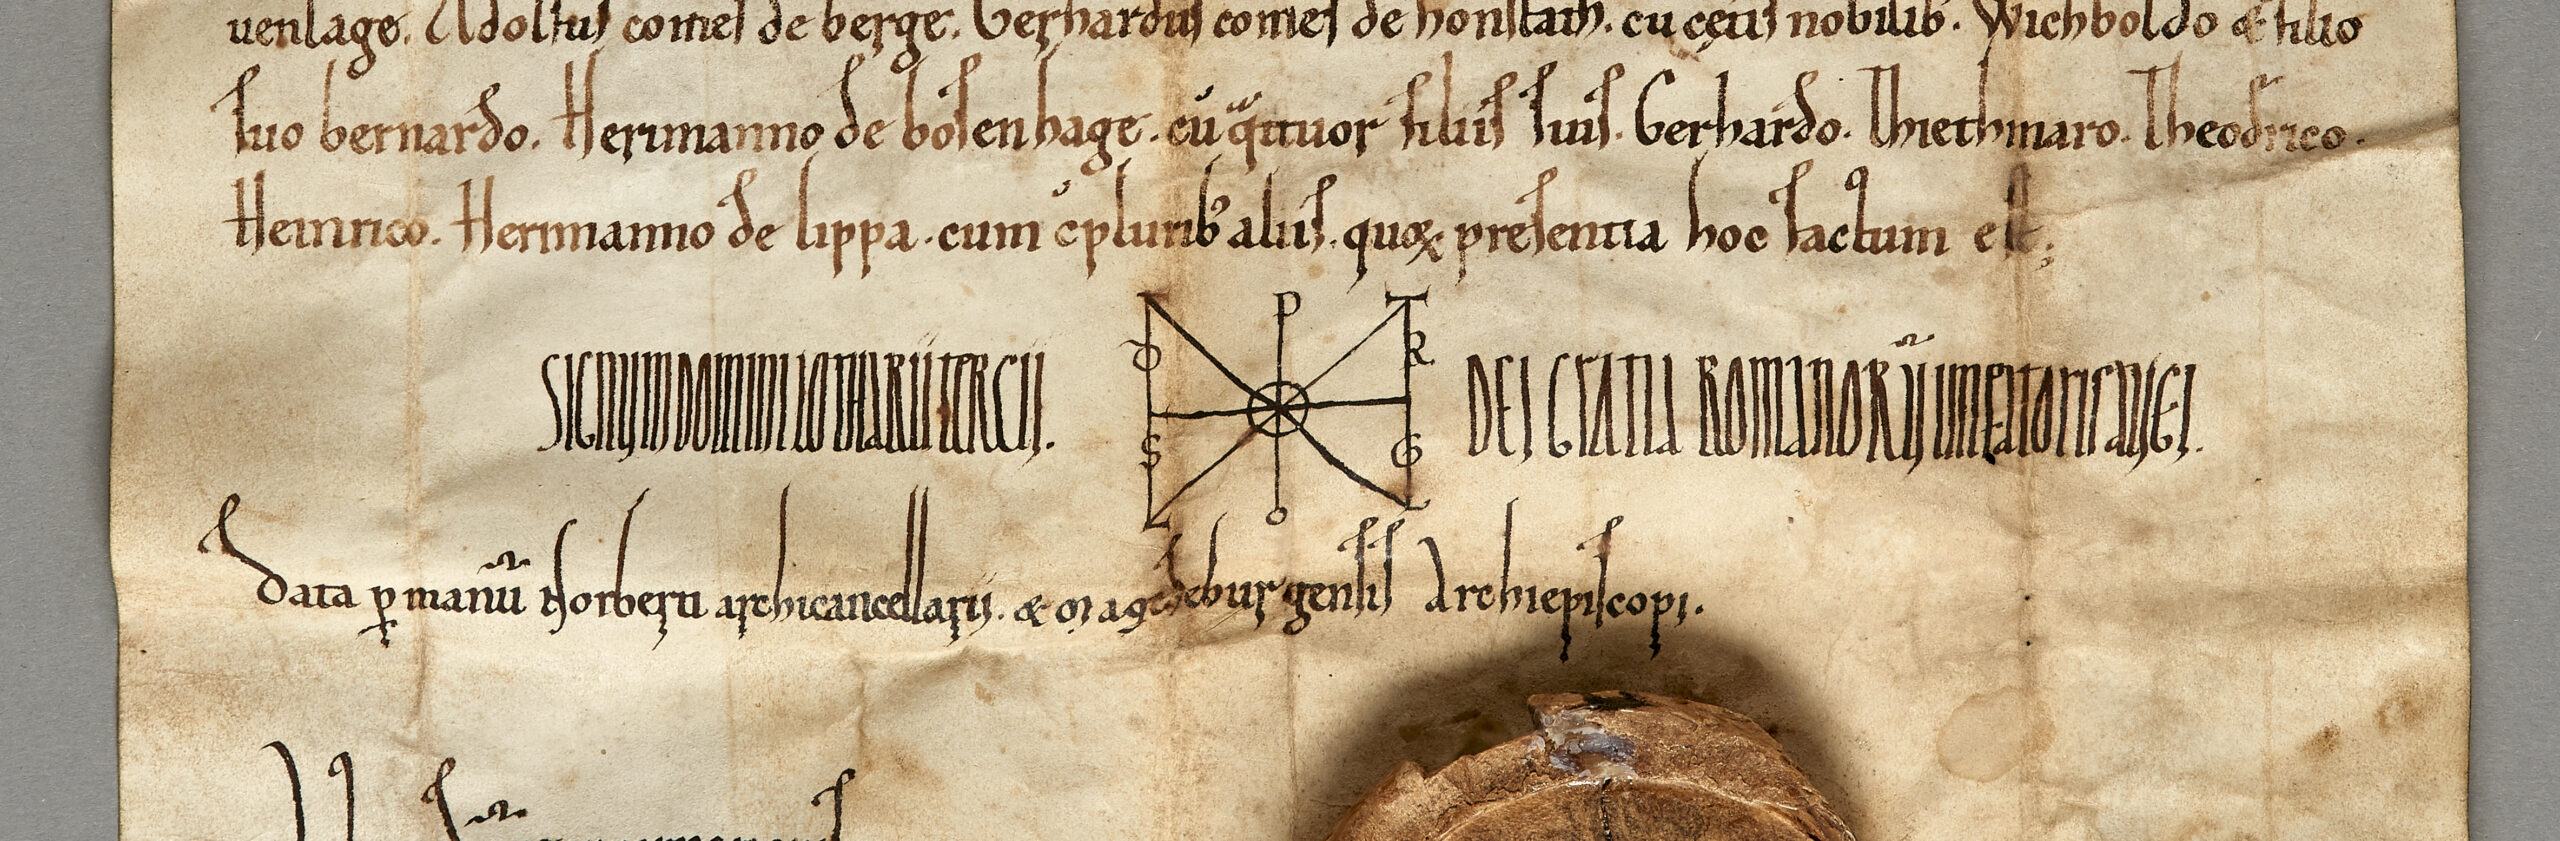 uenlage. Adolfus comes de berge. Gerhardus comes de honstath. cū cęteris nobilib'. Wichboldo & filio
suo bernardo. Herimanno de bosenhage. cū q̄ttuor filiis suis. Gerhardo. Thiethmaro. Theodrico.
Heinrico. Herimanno de lippa. cum cōplurib' aliis. quoꝝ presentia hoc factum est;
SIGNUM DOMINI LOTHARII TERCII.
P T
D R
S G
L O L
DEI GRATIA ROMANORŪ IMPERATORIS AUGI.
Data ꝑ manū Norberti archicancellarii. & Magedeburgensis Archiepiscopi.